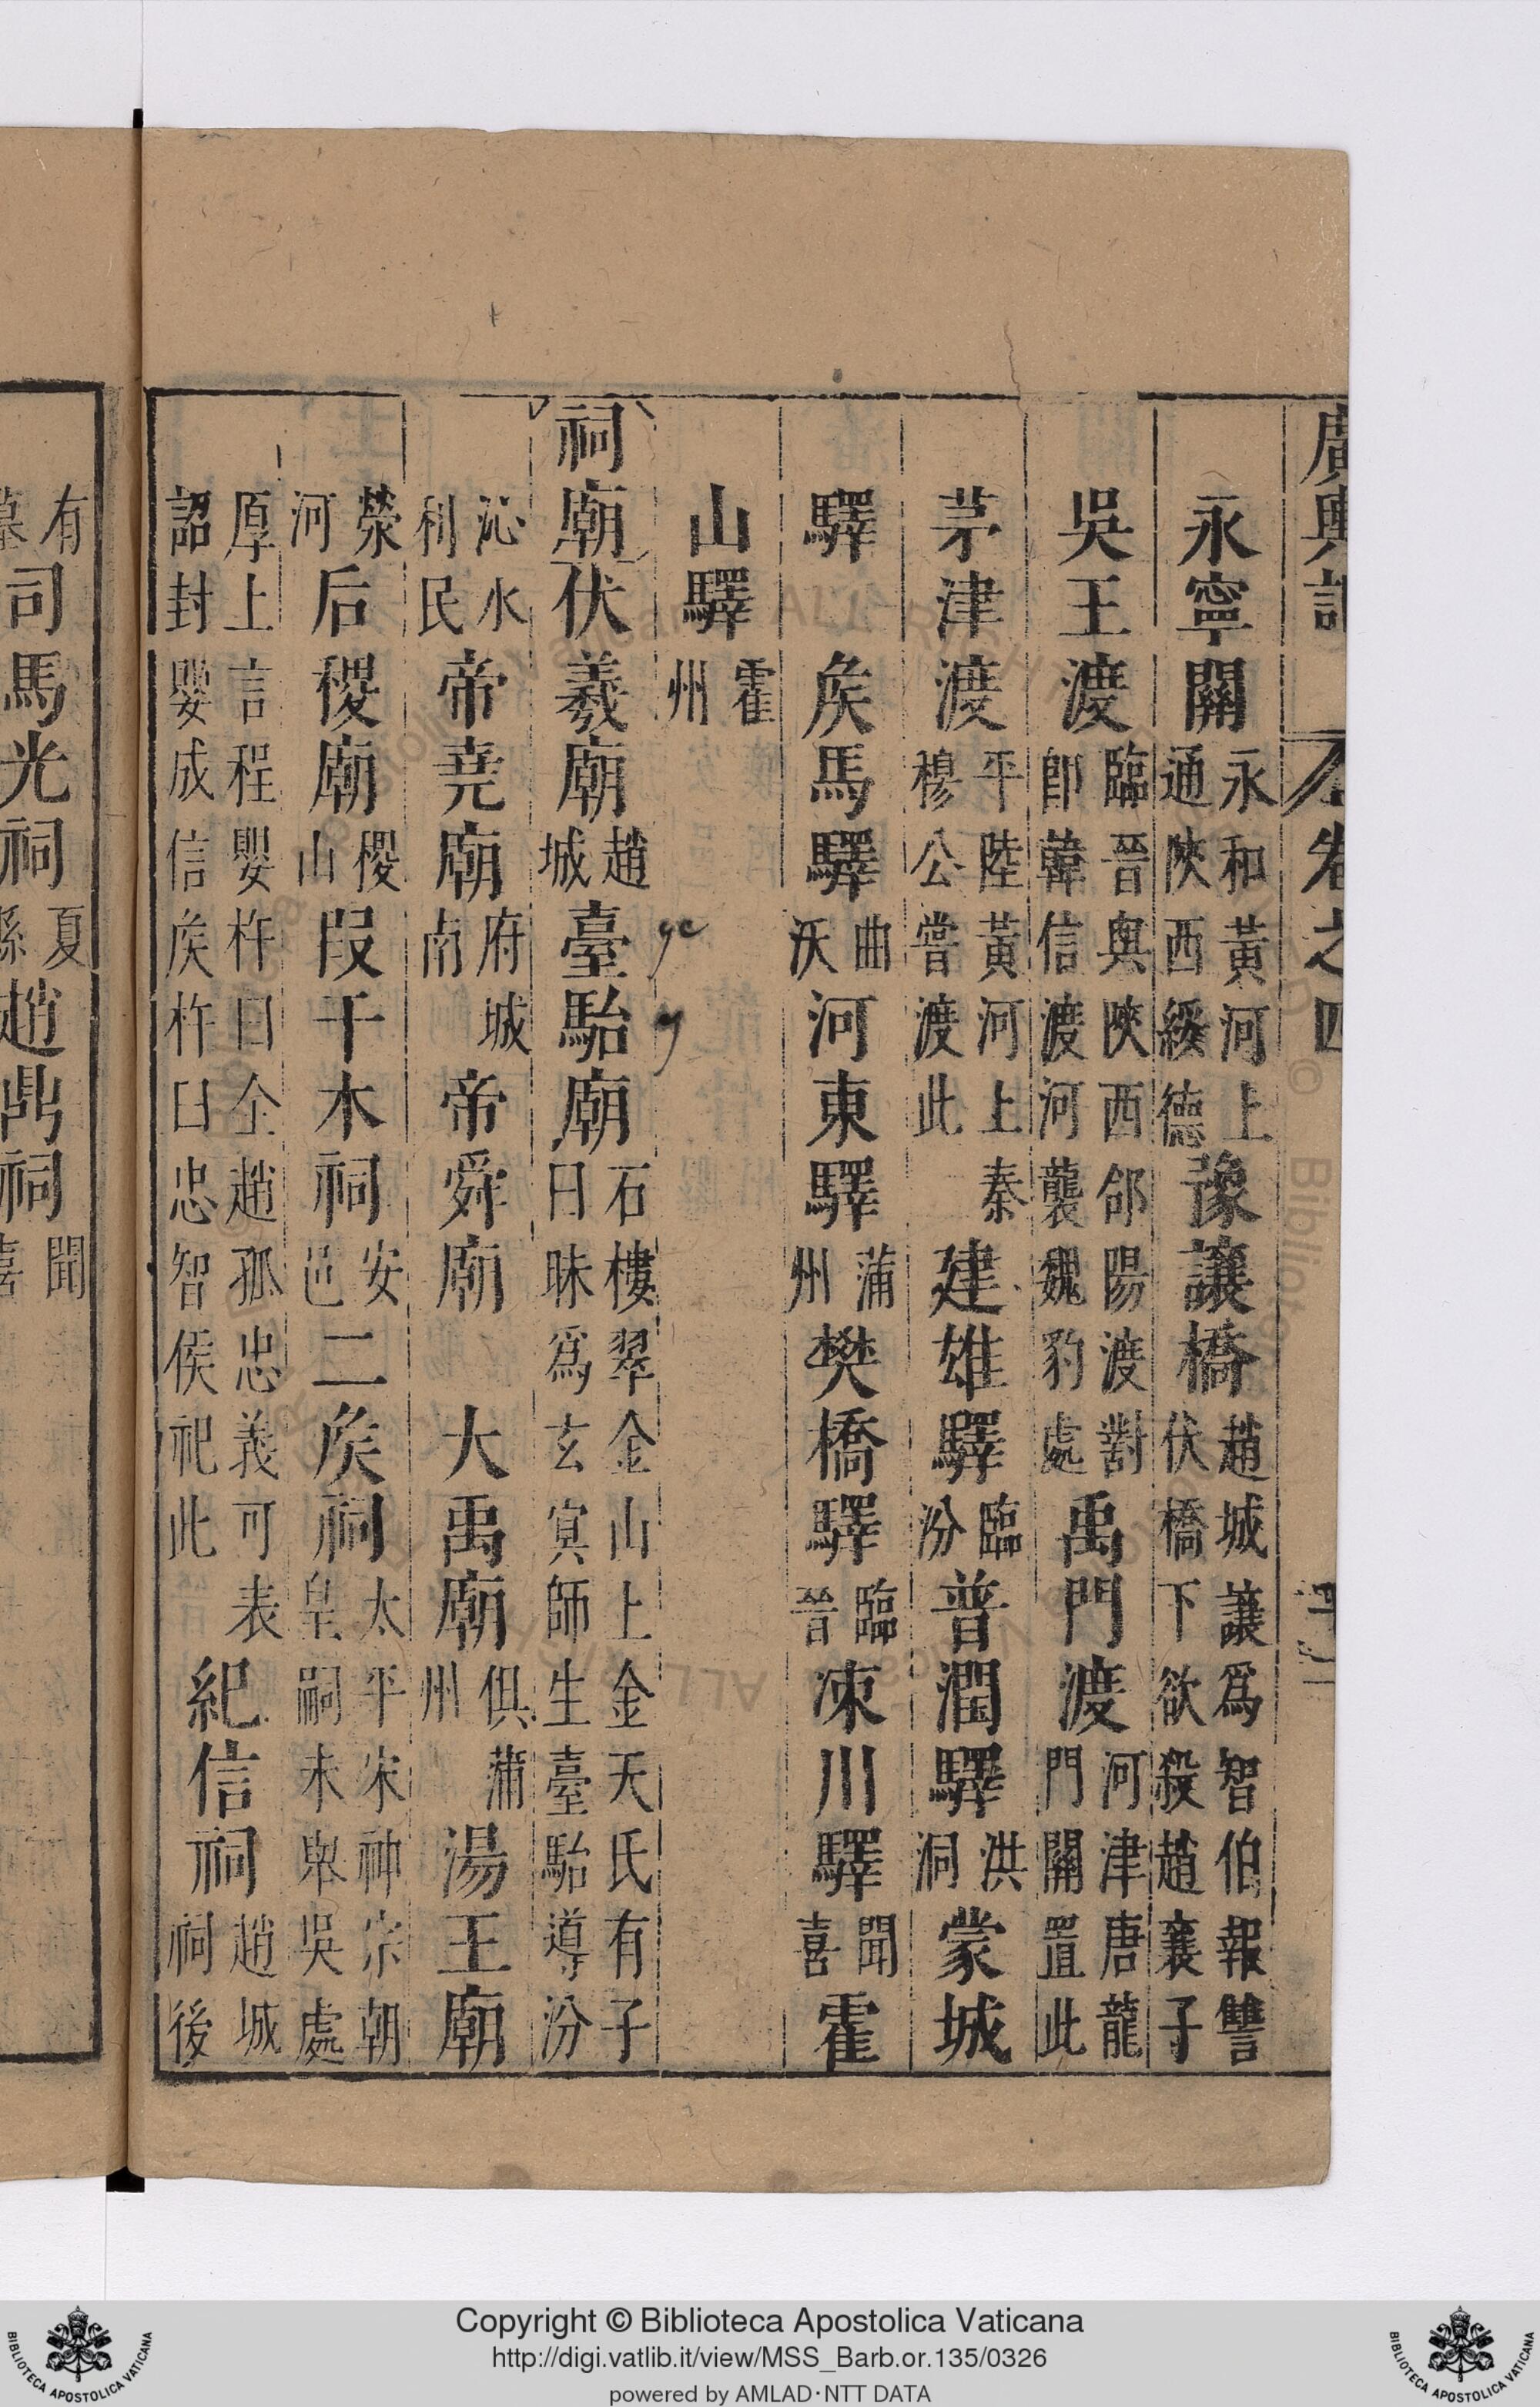 廣輿記 卷之四
永寧關永和黃河上通陝西綏德豫讓橋趙城讓爲智伯報讐伏橋下欲殺趙襄子
吳王渡臨晉與陝西郃陽渡對卽韓信渡河襲魏豹處禹門渡河津唐龍門關置此
茅津渡平陸黃河上秦穆公嘗渡此建雄驛臨汾普潤驛洪洞蒙城
驛矦馬驛曲沃河東驛蒲州樊橋驛臨晉涑川驛聞喜霍
山驛霍州
祠廟伏羲廟趙城臺駘廟石樓翠金金山上金天氏有子曰昧爲玄冥師生臺駘導汾
沁水利民帝堯廟府城南帝舜廟大禹廟俱蒲州湯王廟
滎河后稷廟稷山段干木祠安邑二矦祠太平宋神宗朝皇嗣未舉吳處
厚上言程嬰杵臼仝趙孤忠義可表詔封嬰成信矦杵臼忠智侯祀此紀信祠趙城祠後
有
司馬光祠夏縣趙鼎祠聞喜
ye
y
Copyright © Biblioteca Apostolica Vaticana
http://digi.vatlib.it/view/MSS_Barb.or.135/0326
powered by AMLAD·NTT DATA
BIBLIOTECA APOSTOLICA VATICANA
BIBLIOTECA APOSTOLICA VATICANA